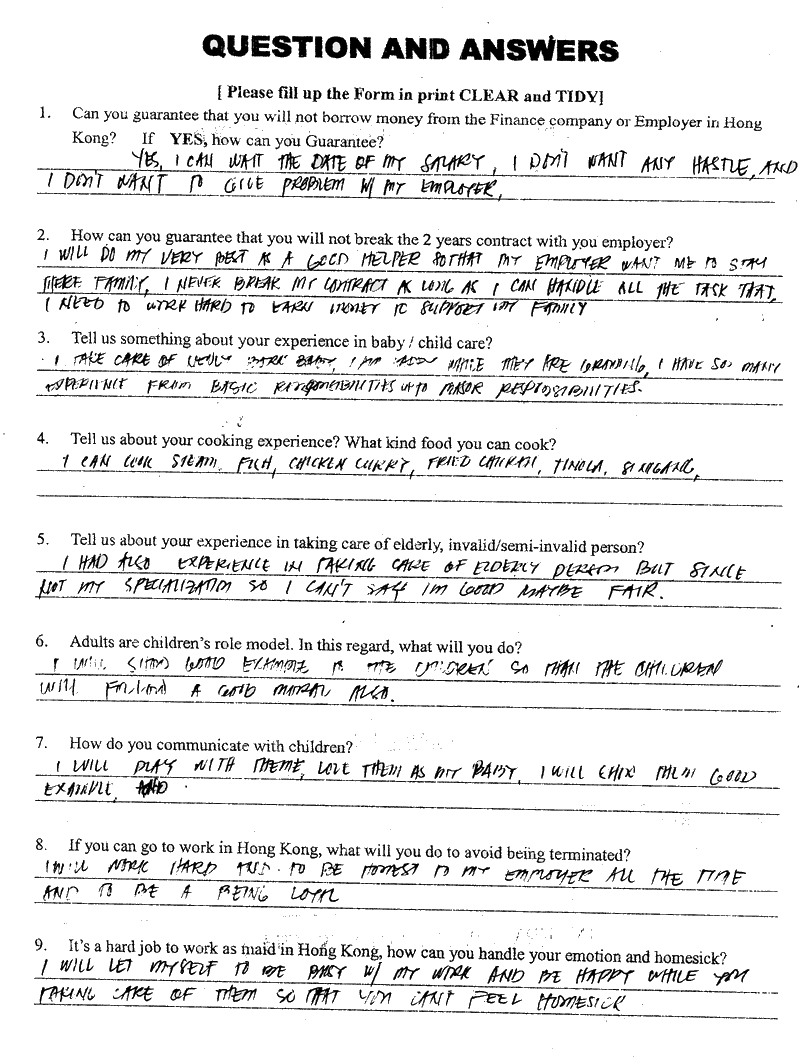 QUESTION AND ANSWERS
[ Please fill up the Form in print CLEAR and TIDY]
1. Can you guarantee that you will not borrow money from the Finance company or Employer in Hong
Kong? If YES, how can you Guarantee?
YES, I CAN WAIT THE DATE OF MY SALARY, I DON'T WANT ANY HASTLE, AND
I DON'T WANT TO GIVE PROBLEM W/ MY EMPLOYER,
2. How can you guarantee that you will not break the 2 years contract with you employer?
I WILL DO MY VERY BEST AS A GOOD HELPER SO THAT MY EMPLOYER WANT ME TO STAY
THERE FAMILY, I NEVER BREAK MY CONTRACT AS LONG AS I CAN HANDLE ALL THE TASK THAT,
I NEED TO WORK HARD TO EARN MONEY TO SUPPORT MY FAMILY
3. Tell us something about your experience in baby / child care?
I TAKE CARE OF BABY, I AM WHILE THEY ARE GRANDING, I HAVE SO MANY
EXPERIENCE FROM BASIC RESPONSIBILITIES UPTO MAJOR RESPONSIBILITIES.
4. Tell us about your cooking experience? What kind food you can cook?
I CAN COOK STEAM, FISH, CHICKEN CURRY, FRIED CHICKEN, TINOLA, SINIGANG,
5. Tell us about your experience in taking care of elderly, invalid/semi-invalid person?
I HAD ALSO EXPERIENCE IN TAKING CARE OF ELDERLY PERSON BUT SINCE
NOT MY SPECIALIZATION SO I CAN'T SAY I'M GOOD MAYBE FAIR.
6. Adults are children's role model. In this regard, what will you do?
I WILL SHOW GOOD EXAMPLE TO THE CHILDREN SO THAT THE CHILDREN
WILL FOLLOW A GOOD MORAL ALSO.
7. How do you communicate with children?
I WILL PLAY WITH THEME, LOVE THEM AS MY BABY, I WILL THEM GOOD
EXAMPLE, AND
8. If you can go to work in Hong Kong, what will you do to avoid being terminated?
I WILL WORK HARD AND TO BE HONEST TO MY EMPLOYER ALL THE TIME
AND TO BE A BEING LOYAL
9. It's a hard job to work as maid in Hong Kong, how can you handle your emotion and homesick?
I WILL LET MYSELF TO BE BUSY W/ MY WORK AND BE HAPPY WHILE YOU
TAKING CARE OF THEM SO THAT YOU CAN'T FEEL HOMESICK